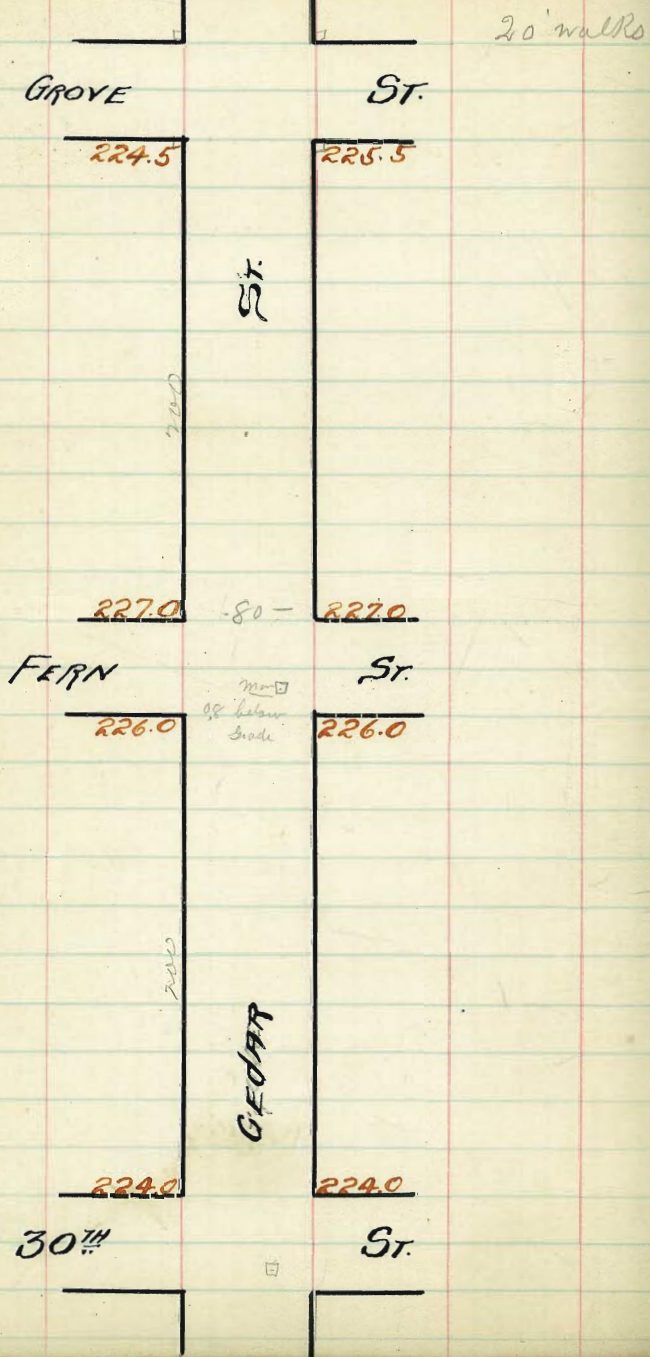 20' walks
GROVE ST.
224.5 225.5
ST.
200
227.0 80 — 227.0
FERN ST.
Mon
0.8 below
Grade
226.0 226.0
200
CEDAR
224.0 224.0
30TH ST.